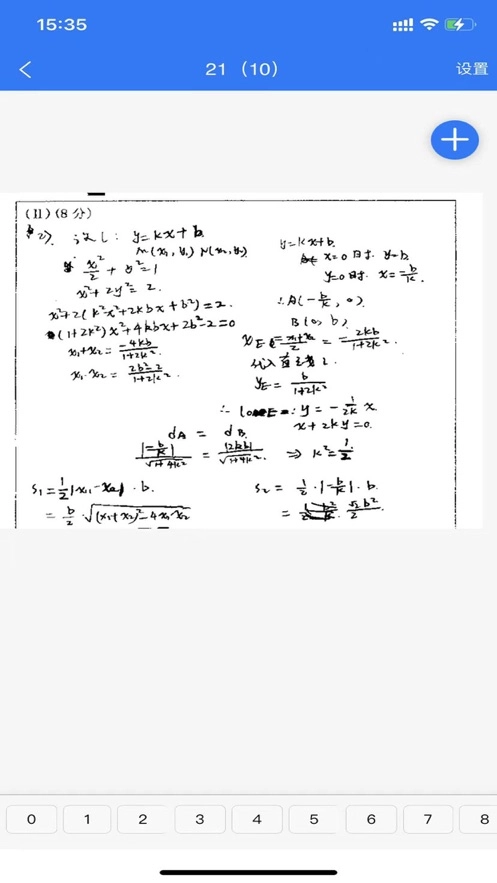 15:35
21（10） 设置
(II)(8分)
(2) 设 l: y=kx+b.
M(x₁, y₁) N(x₂, y₂)
x²/2 + y²=1
x²+2y²=2.
x²+2(k²x²+2kbx+b²)=2.
(1+2k²)x²+4kbx+2b²-2=0
x₁+x₂= -4kb/1+2k².
x₁·x₂= 2b²-2/1+2k².
y=kx+b.
x=0时. y=b
y=0时. x=-b/k.
∴A(-b/k, 0).
B(0, b)
x_E= x₁+x₂/2 = -2kb/1+2k².
代入直线 l.
y_E= b/1+2k²
∴ l_OE: y=-1/2k x.
x+2ky=0.
d_A = d_B.
|-b/k|/√1+4k² = |2kb|/√1+4k². ⇒ k²=1/2
S₁=1/2|x₁-x₂|·b.
= b/2·√(x₁+x₂)²-4x₁·x₂
S₂= 1/2·|-b/k|·b.
= √2b²/2.
0 1 2 3 4 5 6 7 8